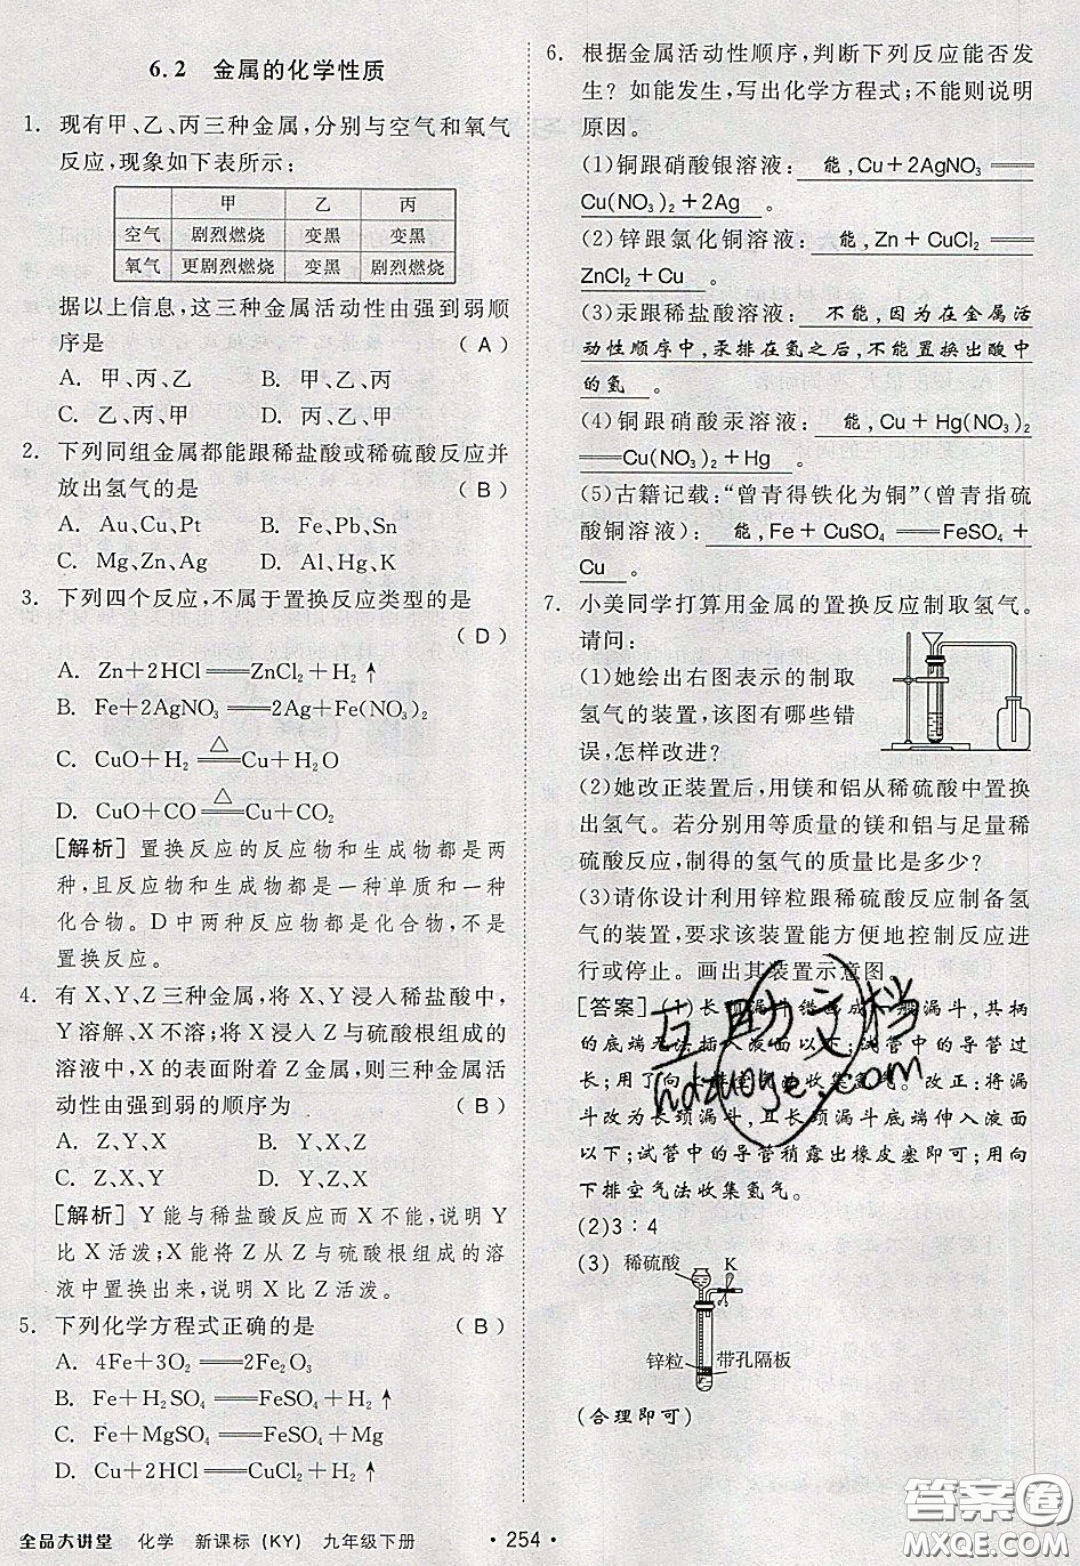 6.2 金属的化学性质
1. 现有甲、乙、丙三种金属,分别与空气和氧气
反应,现象如下表所示:
甲 乙 丙
空气 剧烈燃烧 变黑 变黑
氧气 更剧烈燃烧 变黑 剧烈燃烧
据以上信息,这三种金属活动性由强到弱顺
序是 (A)
A. 甲、丙、乙 B. 甲、乙、丙
C. 乙、丙、甲 D. 丙、乙、甲
2. 下列同组金属都能跟稀盐酸或稀硫酸反应并
放出氢气的是 (B)
A. Au,Cu,Pt B. Fe,Pb,Sn
C. Mg,Zn,Ag D. Al,Hg,K
3. 下列四个反应,不属于置换反应类型的是
(D)
A. Zn+2HCl══ZnCl₂+H₂↑
B. Fe+2AgNO₃══2Ag+Fe(NO₃)₂
C. CuO+H₂ △══ Cu+H₂O
D. CuO+CO △══ Cu+CO₂
[解析] 置换反应的反应物和生成物都是两
种,且反应物和生成物都是一种单质和一种
化合物。D中两种反应物都是化合物,不是
置换反应。
4. 有X、Y、Z三种金属,将X浸入稀盐酸中,
Y溶解、X不溶;将X浸入Z与硫酸根组成的
溶液中,X的表面附着Z金属,则三种金属活
动性由强到弱的顺序为 (B)
A. Z、Y、X B. Y、X、Z
C. Z、X、Y D. Y、Z、X
[解析] Y能与稀盐酸反应而X不能,说明Y
比X活泼;X能将Z从Z与硫酸根组成的溶
液中置换出来,说明X比Z活泼。
5. 下列化学方程式正确的是 (B)
A. 4Fe+3O₂══2Fe₂O₃
B. Fe+H₂SO₄══FeSO₄+H₂↑
C. Fe+MgSO₄══FeSO₄+Mg
D. Cu+2HCl══CuCl₂+H₂↑
6. 根据金属活动性顺序,判断下列反应能否发
生?如能发生,写出化学方程式;不能则说明
原因。
(1)铜跟硝酸银溶液: 能,Cu+2AgNO₃══
Cu(NO₃)₂+2Ag 。
(2)锌跟氯化铜溶液: 能,Zn+CuCl₂══
ZnCl₂+Cu 。
(3)汞跟稀盐酸溶液: 不能,因为在金属活
动性顺序中,汞排在氢之后,不能置换出酸中
的氢 。
(4)铜跟硝酸汞溶液: 能,Cu+Hg(NO₃)₂
══Cu(NO₃)₂+Hg 。
(5)古籍记载:“曾青得铁化为铜”(曾青指硫
酸铜溶液): 能,Fe+CuSO₄══FeSO₄+
Cu 。
7. 小美同学打算用金属的置换反应制取氢气。
请问:
(1)她绘出右图表示的制取
氢气的装置,该图有哪些错
误,怎样改进?
(2)她改正装置后,用镁和铝从稀硫酸中置换
出氢气。若分别用等质量的镁和铝与足量稀
硫酸反应,制得的氢气的质量比是多少?
(3)请你设计利用锌粒跟稀硫酸反应制备氢
气的装置,要求该装置能方便地控制反应进
行或停止。画出其装置示意图。
[答案] (1)长颈漏斗错画成一般漏斗,其柄
的底端无法插入液面以下;试管中的导管过
长;用了向上排空气法收集氢气。改正:将漏
斗改为长颈漏斗,且长颈漏斗底端伸入液面
以下;试管中的导管稍露出橡皮塞即可;用向
下排空气法收集氢气。
(2)3:4
(3) 稀硫酸 K
锌粒 带孔隔板
(合理即可)
互助文档
hdzuoye.com
全品大讲堂 化学 新课标(KY) 九年级下册 ·254·
答案圈
MXQE.COM